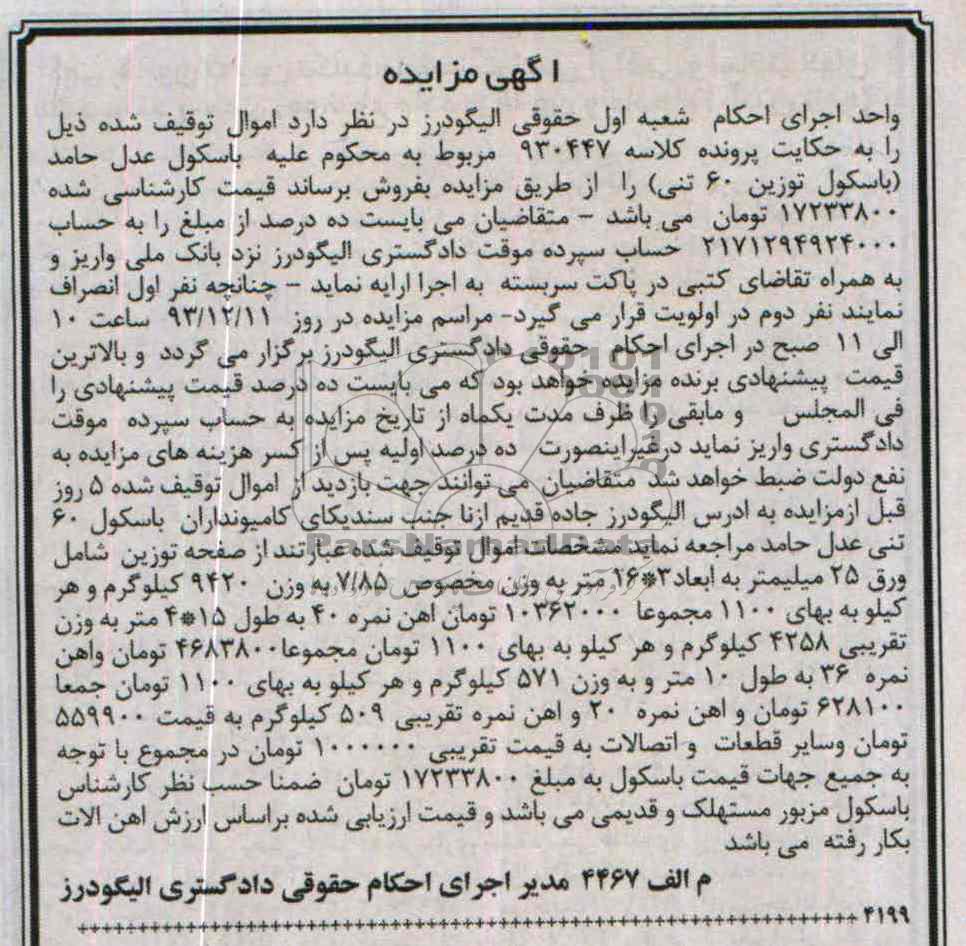 اگهی مزایده
واحد اجرای احکام شعبه اول حقوقی الیگودرز در نظر دارد اموال توقیف شده ذیل
را به حکایت پرونده کلاسه ۹۳۰۴۴۷ مربوط به محکوم علیه باسکول عدل حامد
(باسکول توزین ۶۰ تنی) را از طریق مزایده بفروش برساند قیمت کارشناسی شده
۱۷۲۳۳۸۰۰ تومان می باشد - متقاضیان می بایست ده درصد از مبلغ را به حساب
۲۱۷۱۲۹۴۹۲۴۰۰۰ حساب سپرده موقت دادگستری الیگودرز نزد بانک ملی واریز و
به همراه تقاضای کتبی در پاکت سربسته به اجرا ارایه نماید - چنانچه نفر اول انصراف
نمایند نفر دوم در اولویت قرار می گیرد- مراسم مزایده در روز ۹۳/۱۲/۱۱ ساعت ۱۰
الی ۱۱ صبح در اجرای احکام حقوقی دادگستری الیگودرز برگزار می گردد و بالاترین
قیمت پیشنهادی برنده مزایده خواهد بود که می بایست ده درصد قیمت پیشنهادی را
فی المجلس و مابقی را ظرف مدت یکماه از تاریخ مزایده به حساب سپرده موقت
دادگستری واریز نماید درغیراینصورت ده درصد اولیه پس از کسر هزینه های مزایده به
نفع دولت ضبط خواهد شد متقاضیان می توانند جهت بازدید از اموال توقیف شده ۵ روز
قبل ازمزایده به ادرس الیگودرز جاده قدیم ازنا جنب سندیکای کامیونداران باسکول ۶۰
تنی عدل حامد مراجعه نماید مشخصات اموال توقیف شده عبارتند از صفحه توزین شامل
ورق ۲۵ میلیمتر به ابعاد۳*۱۶ متر به وزن مخصوص ۷/۸۵ به وزن ۹۴۲۰ کیلوگرم و هر
کیلو به بهای ۱۱۰۰ مجموعا ۱۰۳۶۲۰۰۰ تومان اهن نمره ۴۰ به طول ۱۵*۴ متر به وزن
تقریبی ۴۲۵۸ کیلوگرم و هر کیلو به بهای ۱۱۰۰ تومان مجموعا۴۶۸۳۸۰۰ تومان واهن
نمره ۳۶ به طول ۱۰ متر و به وزن ۵۷۱ کیلوگرم و هر کیلو به بهای ۱۱۰۰ تومان جمعا
۶۲۸۱۰۰ تومان و اهن نمره ۲۰ و اهن نمره تقریبی ۵۰۹ کیلوگرم به قیمت ۵۵۹۹۰۰
تومان وسایر قطعات و اتصالات به قیمت تقریبی ۱۰۰۰۰۰۰ تومان در مجموع با توجه
به جمیع جهات قیمت باسکول به مبلغ ۱۷۲۳۳۸۰۰ تومان ضمنا حسب نظر کارشناس
باسکول مزبور مستهلک و قدیمی می باشد و قیمت ارزیابی شده براساس ارزش اهن الات
بکار رفته می باشد
م الف ۴۴۶۷ مدیر اجرای احکام حقوقی دادگستری الیگودرز
۴۱۹۹
ParsNamadData